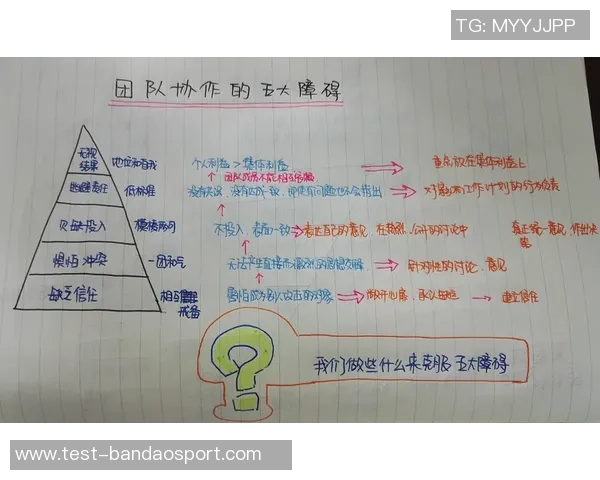 TG: MYYJJPP
团队协作的五大障碍
无视结果 地位和自我 个人利益 > 集体利益 重点放在集体利益上
团队成员不能相互
逃避责任 低标准 没有达成一致，即使有问题也不会指出 对最新工作计划的
欠缺投入 模棱两可 不投入，表面一致 表达自己的意见，在激烈、公开的讨论中 真正统一意见，作出决策
惧怕冲突 一团和气 无法产生直接而激烈的思想交锋 针对性的讨论、意见
缺乏信任 相互戒备 害怕成为别人攻击的对象 敞开心扉，承认 建立信任
我们做些什么来克服五大障碍
www.test-bandaosport.com